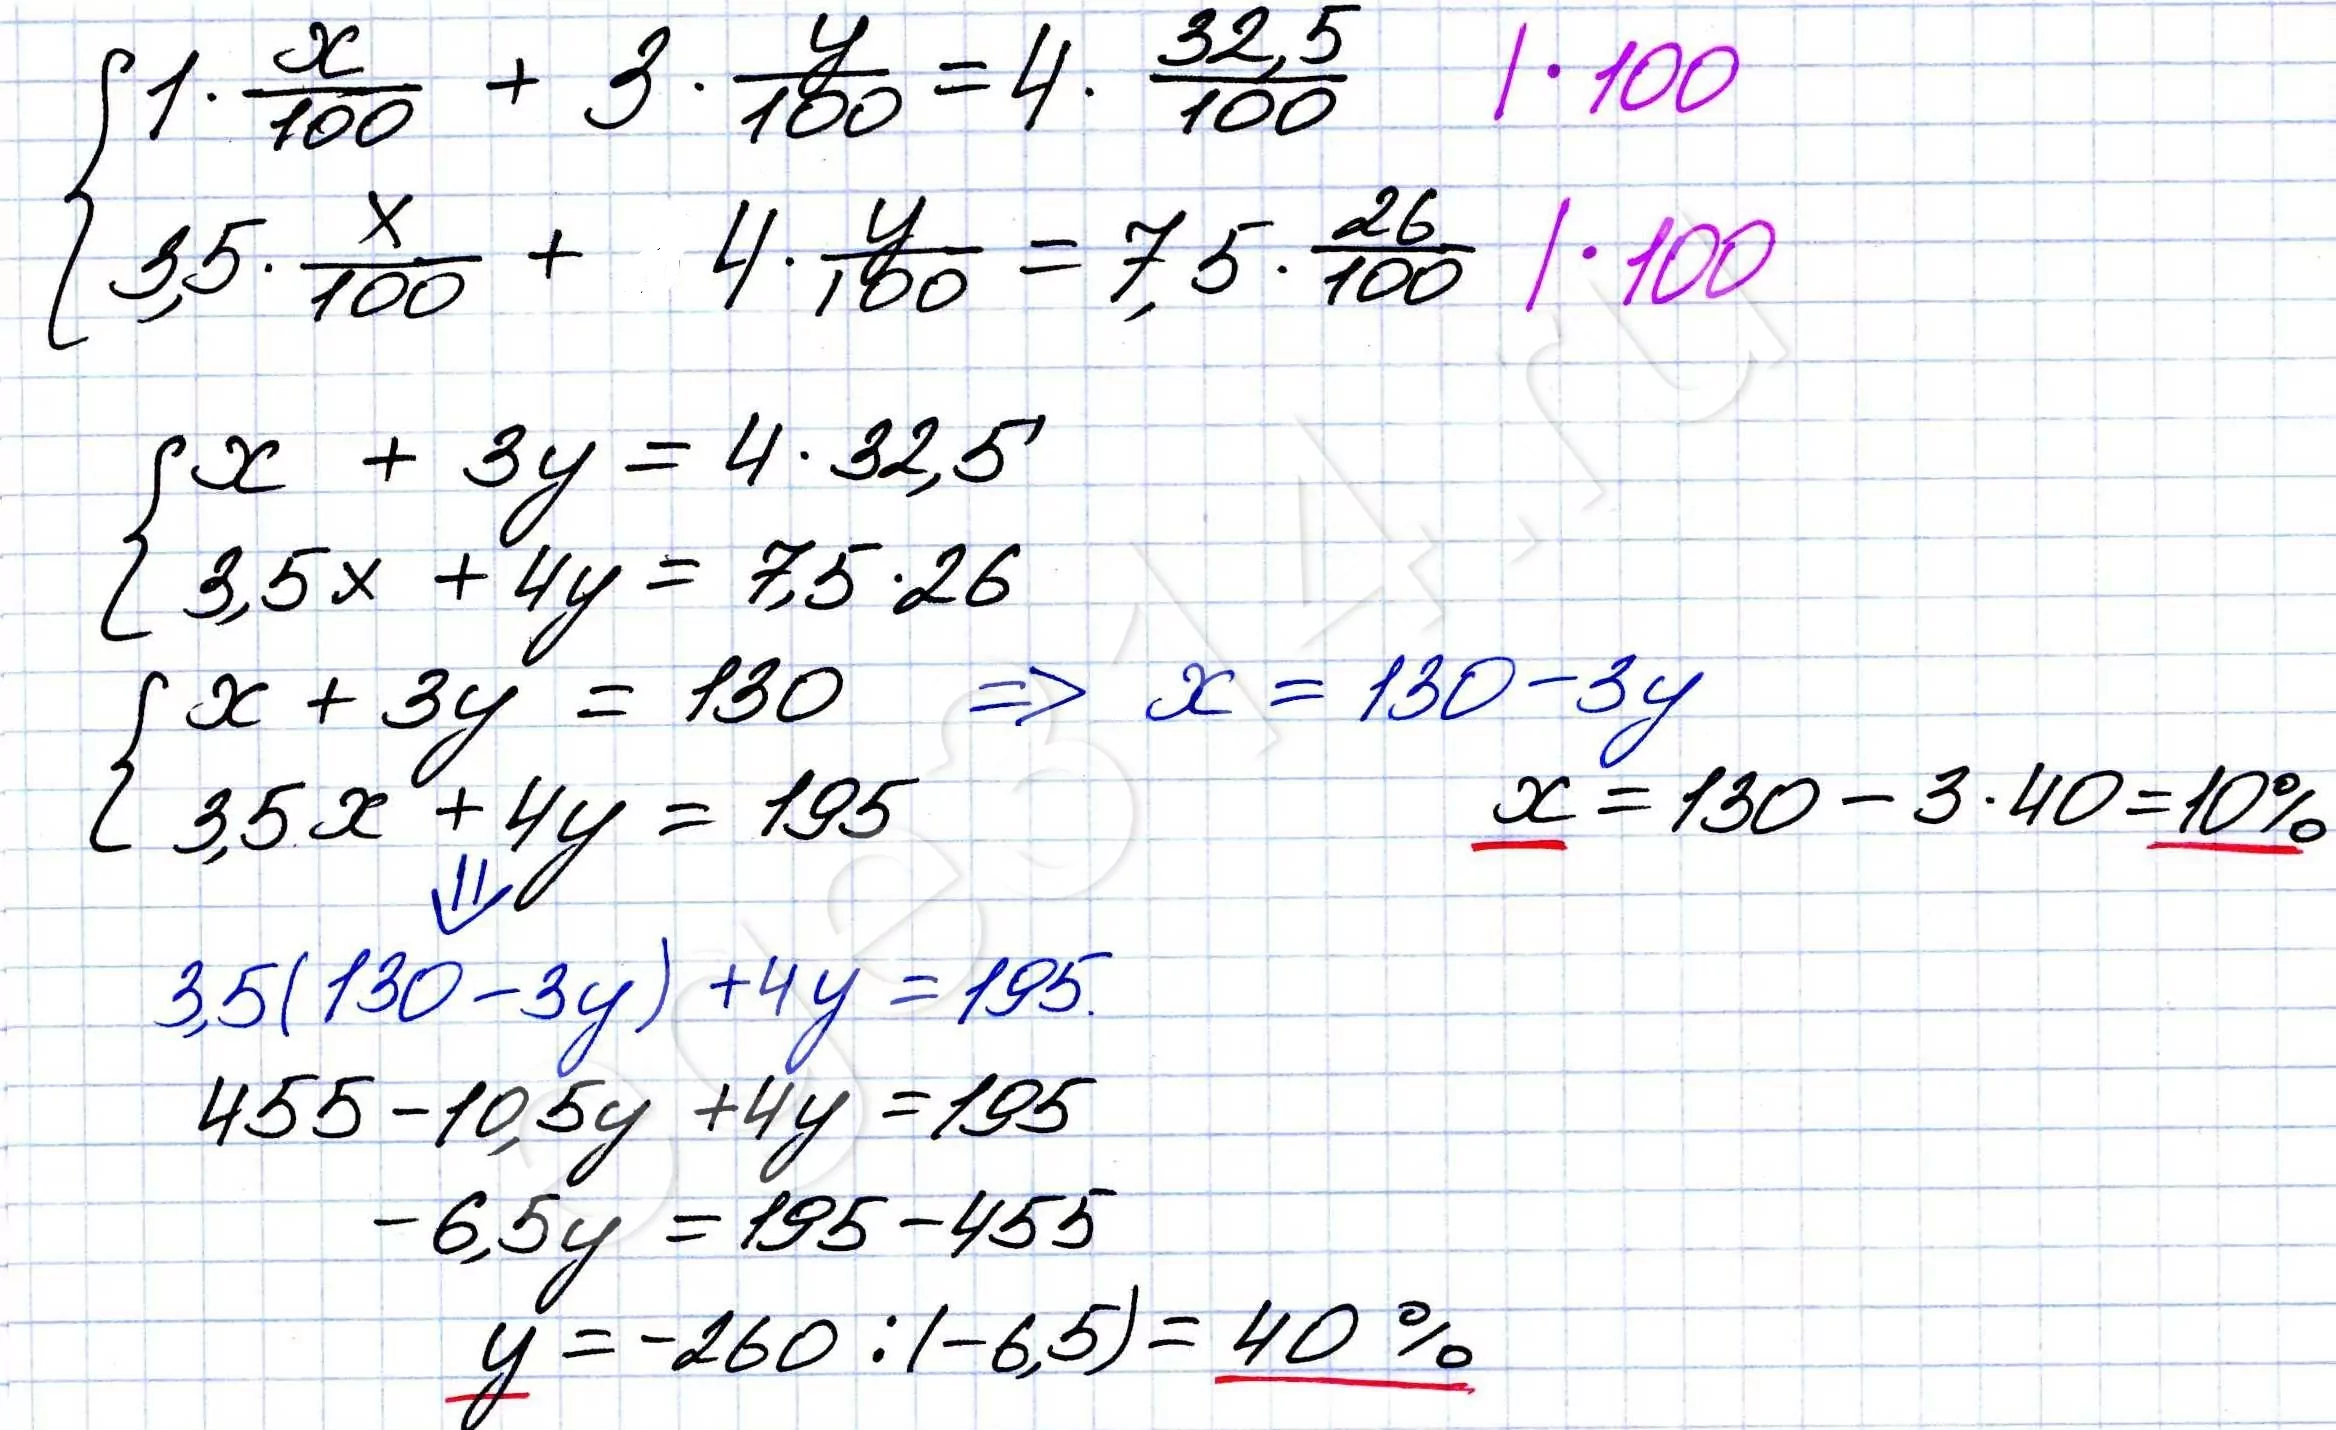 1 · x/100 + 3 · y/100 = 4 · 32,5/100 | · 100
3,5 · x/100 + 4 · y/100 = 7,5 · 26/100 | · 100
x + 3y = 4 · 32,5
3,5x + 4y = 7,5 · 26
x + 3y = 130 => x = 130 - 3y
3,5x + 4y = 195 x = 130 - 3 · 40 = 10%
3,5(130 - 3y) + 4y = 195.
455 - 10,5y + 4y = 195
-6,5y = 195 - 455
y = -260 : (-6,5) = 40%
oge314.ru